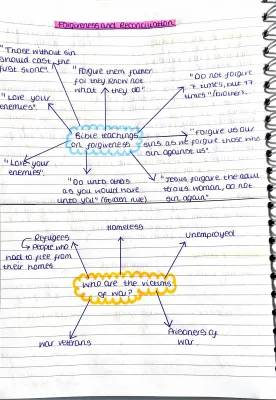 Forgiveness and Reconciliation
"Those without sin
should cast the
first stone".
"Forgive them father
for they know not
what they do".
"Do not forgive
7 times, but 77
times"
"Love your
enemies".
Bible teachings
on forgiveness
"Forgive us our
sins, as we forgive those who
sin against us".
"Love your
enemies".
"Do unto others
as you would have
unto you" (Golden rule)
"Jesus forgave the adul
terous woman, do not
sin again".
Homeless
Refugees
People who
had to flee from
their homes
Unemployed
Who are the victims
of war?
War veterans
Prisoners of
war